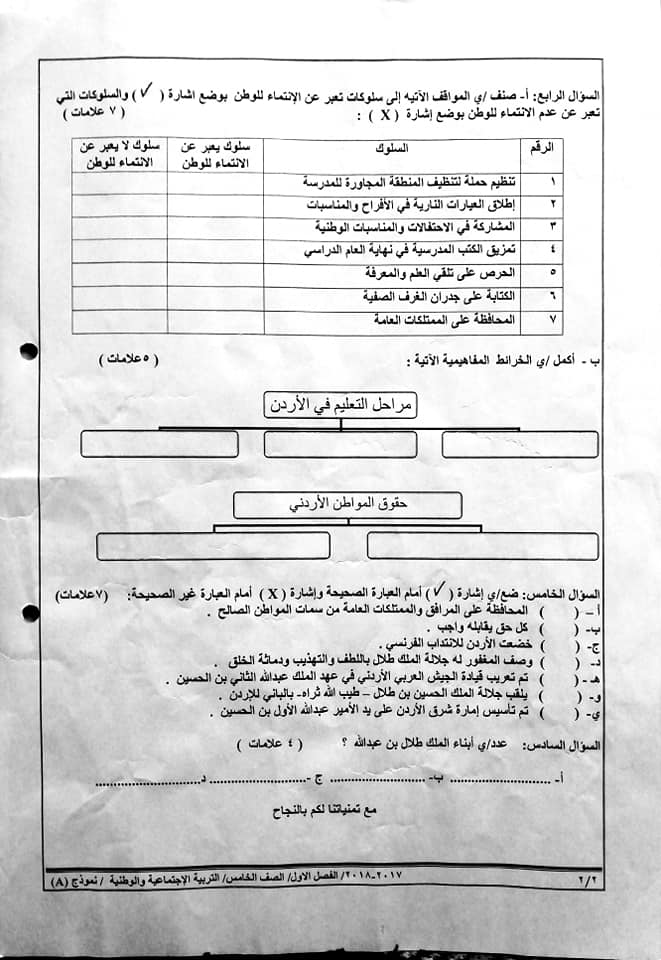 السؤال الرابع: أ- صنف /ي المواقف الآتيه إلى سلوكات تعبر عن الإنتماء للوطن بوضع اشارة ( ✓ ) والسلوكات التي
تعبر عن عدم الانتماء للوطن بوضع إشارة ( X ) : ( ٧ علامات )
الرقم السلوك سلوك يعبر عن الانتماء للوطن سلوك لا يعبر عن الانتماء للوطن
١ تنظيم حملة لتنظيف المنطقة المجاورة للمدرسة
٢ إطلاق العيارات النارية في الأفراح والمناسبات
٣ المشاركة في الاحتفالات والمناسبات الوطنية
٤ تمزيق الكتب المدرسية في نهاية العام الدراسي
٥ الحرص على تلقي العلم والمعرفة
٦ الكتابة على جدران الغرف الصفية
٧ المحافظة على الممتلكات العامة
ب - أكمل /ي الخرائط المفاهيمية الآتية : ( ٥ علامات )
مراحل التعليم في الأردن
حقوق المواطن الأردني
السؤال الخامس: ضع/ي إشارة ( ✓ ) أمام العبارة الصحيحة وإشارة ( X ) أمام العبارة غير الصحيحة: (٧علامات)
أ – ( ) المحافظة على المرافق والممتلكات العامة من سمات المواطن الصالح .
ب- ( ) كل حق يقابله واجب .
ج- ( ) خضعت الأردن للانتداب الفرنسي .
د- ( ) وصف المغفور له جلالة الملك طلال باللطف والتهذيب ودماثة الخلق .
هـ - ( ) تم تعريب قيادة الجيش العربي الأردني في عهد الملك عبدالله الثاني بن الحسين .
و- ( ) يلقب جلالة الملك الحسين بن طلال – طيب الله ثراه- بالباني للإردن .
ي- ( ) تم تأسيس إمارة شرق الأردن على يد الأمير عبدالله الأول بن الحسين .
السؤال السادس: عدد/ي أبناء الملك طلال بن عبدالله ؟ ( ٤ علامات )
أ- .......................... ب- .......................... ج - .......................... د..........................
مع تمنياتنا لكم بالنجاح
٢/٢ ٢٠١٧-٢٠١٨/ الفصل الاول/ الصف الخامس/ التربية الإجتماعية والوطنية / نموذج (A)